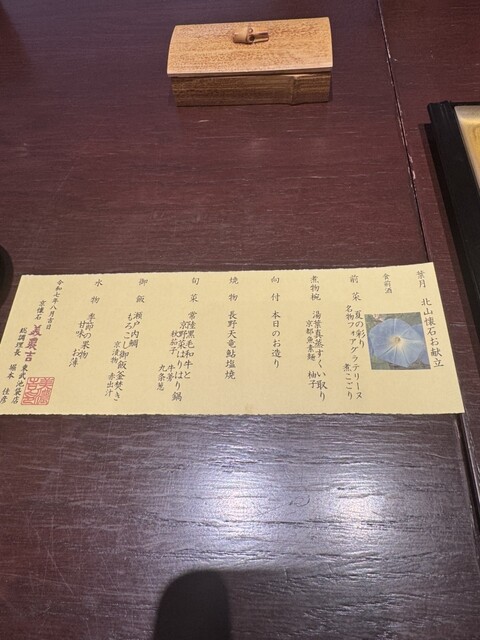 葉月　北山懐石お献立
食前酒
前菜　夏の彩り
名物フォアグラテリーヌ
煮こごり
煮物椀　湯葉真蒸すくい取り
京都魚素麺　柚子
向付　本日のお造り
焼物　長野天竜鮎塩焼
旬菜　常陸黒毛和牛と
京野菜はりはり鍋
秋茄子　牛蒡　九条葱
御飯　瀬戸内鯛
もろこし御飯釜焚き
京漬物　赤出汁
水物　季節の果物
甘味　お薄
令和七年八月吉日
京懐石　美濃吉　東武池袋店
総調理長　堀本　佳彦